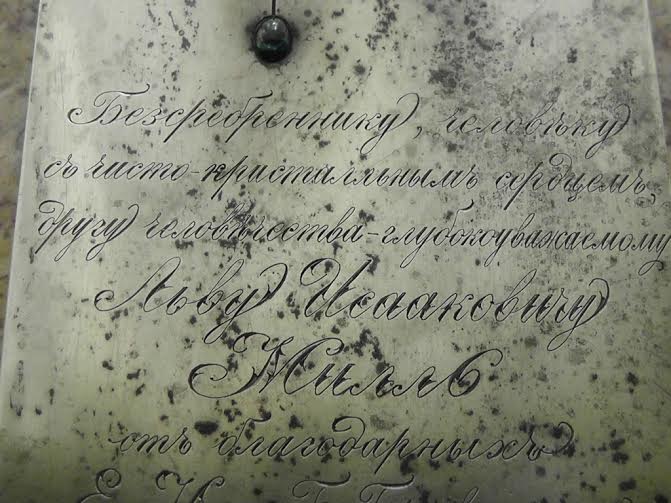 Безсребреннику, человѣку
съ чисто-кристалльнымъ сердцемъ,
другу человѣчества-глубокоуважаемому
Льву Исааковичу
отъ благодарныхъ